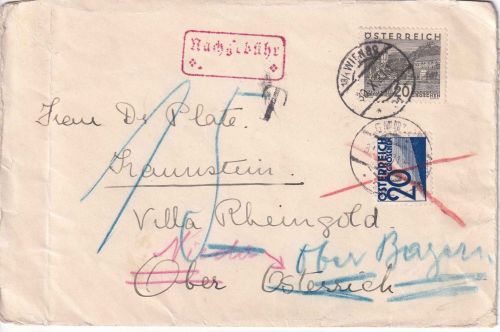 Nachgebühr
ÖSTERREICH
20
GROSCHEN
WIEN
T
15
Frau Dr Plate.
Traunstein.
ÖSTERREICH
20
GROSCHEN
Villa Rheingold
Nieder
Ober Bayern
Ober Österreich